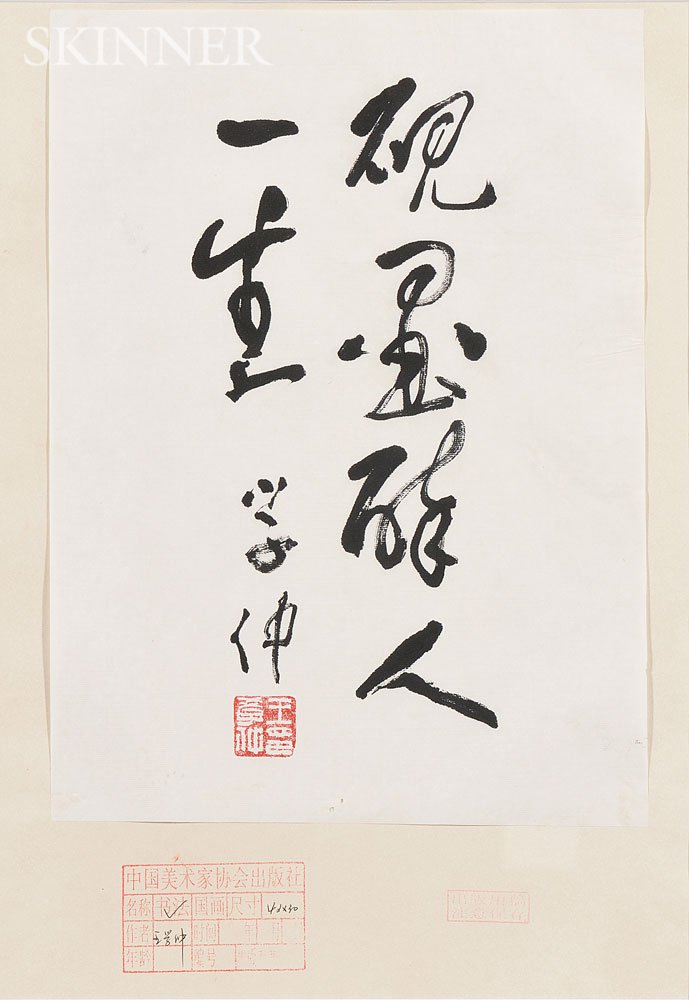 SKINNER
砚墨醉人
一生
学仲
中国美术家协会出版社
名称 书法 国画 尺寸
作者 王学仲 时间 年 月
年龄 编号